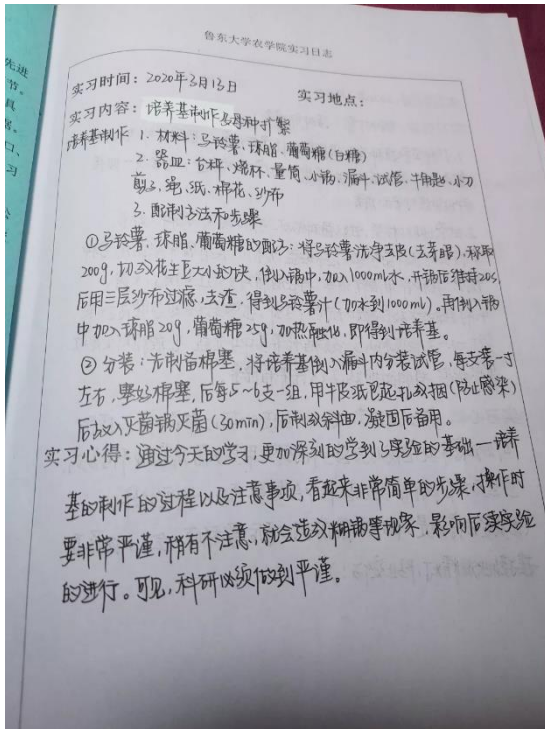 鲁东大学农学院实习日志
实习时间：2020年3月13日 实习地点：
实习内容：培养基制作与母种扩繁
培养基制作 1. 材料：马铃薯、琼脂、葡萄糖(白糖)
2. 器皿：台秤、烧杯、量筒、小锅、漏斗、试管、牛角匙、小刀
剪刀、绳、纸、棉花、纱布
3. 配制方法和步骤
①马铃薯、琼脂、葡萄糖的配方：将马铃薯洗净去皮(去芽眼)，称取
200g，切成花生豆大小的块，倒入锅中，加入1000ml水，开锅后维持20s，
后用三层纱布过滤，去渣，得到马铃薯汁(加水到1000ml)。再倒入锅
中加入琼脂20g，葡萄糖25g，加热融化，即得到培养基。
②分装：先制备棉塞，将培养基倒入漏斗内分装试管，每支装一寸
左右，塞好棉塞，后每5~6支一组，用牛皮纸包起，扎成捆(防止感染)
后放入灭菌锅灭菌(30min)，后制成斜面，凝固后备用。
实习心得：通过今天的学习，更加深刻的学到了实验的基础—培养
基的制作的过程以及注意事项，看起来非常简单的步骤，操作时
要非常严谨，稍有不注意，就会造成糊锅等现象，影响后续实验
的进行。可见，科研必须做到严谨。
先进
节。
具
口、
习